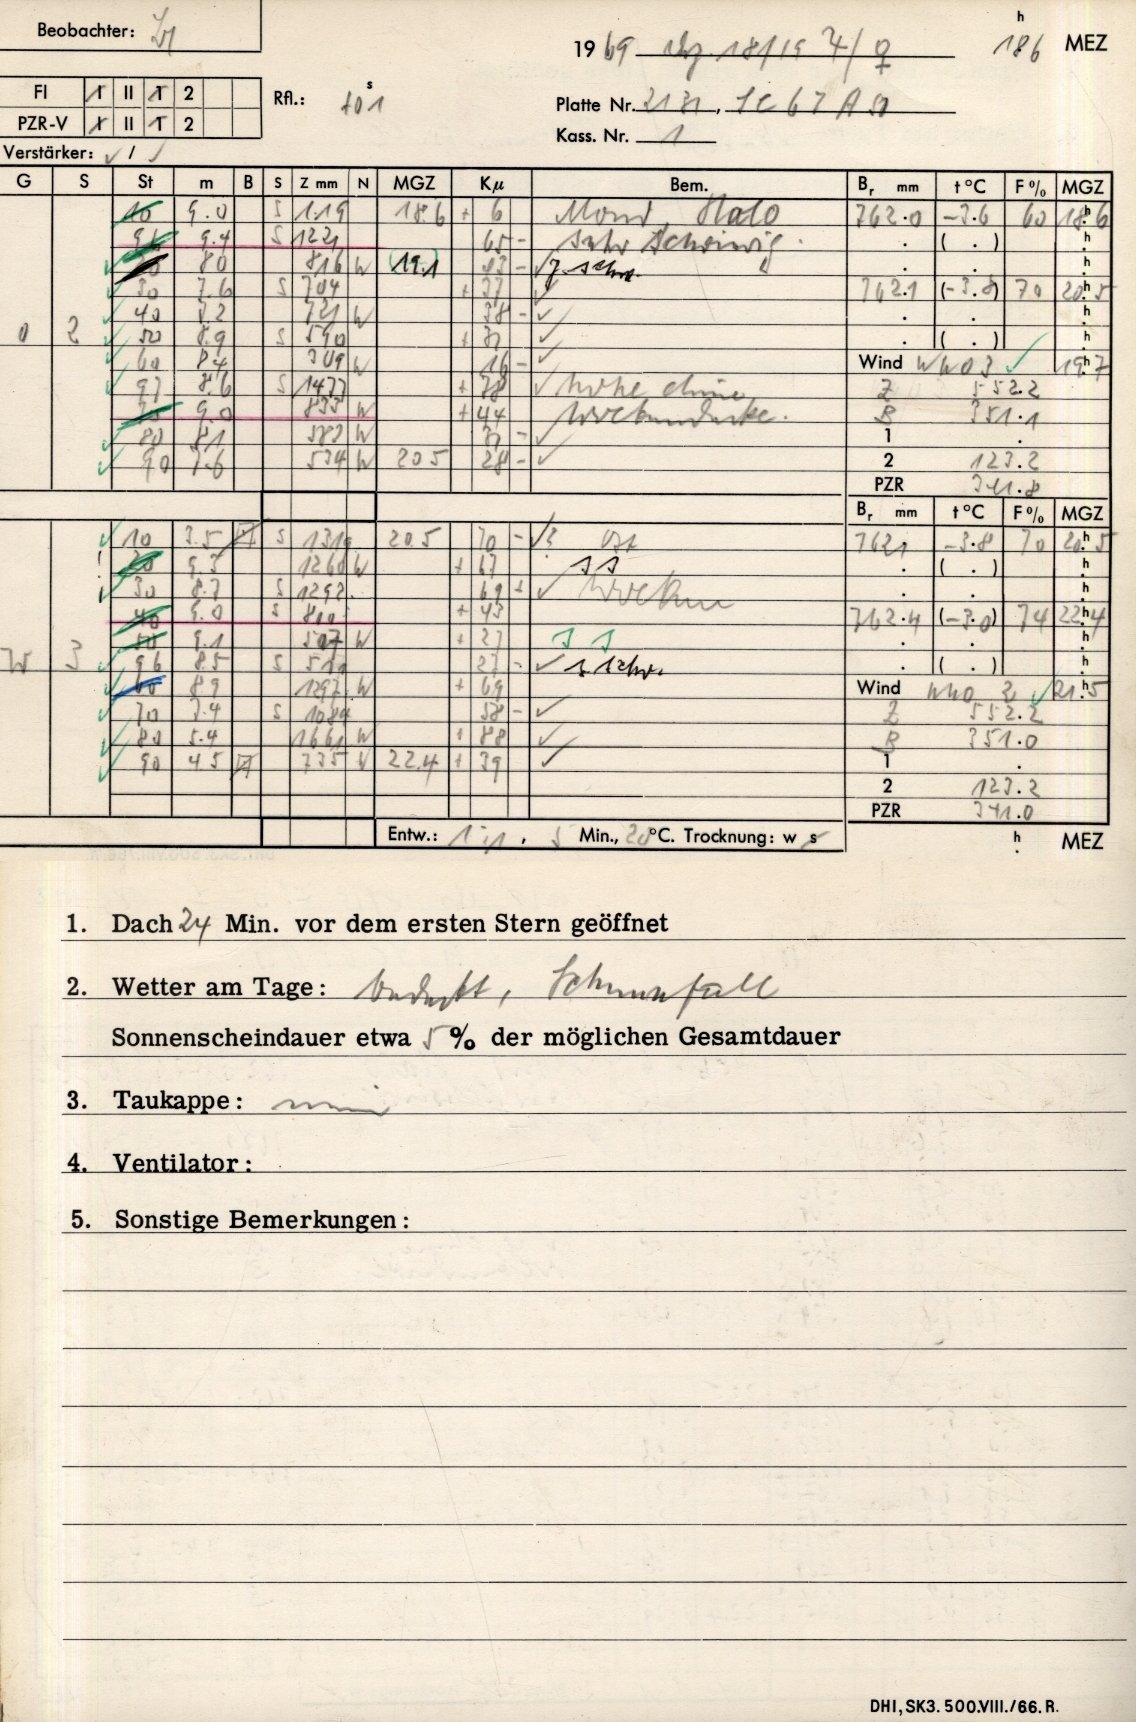 Beobachter:
1969 18/19 ♃/♀ 18.6 h MEZ
FI I II 1 2 Rfl.: +01 s
Platte Nr. 2131, SC 67 A 50
PZR-V I II 1 2
Kass. Nr. 1
Verstärker: ✓ / ✓
G S St m B S Z mm N MGZ Kμ Bem. Br mm t °C F % MGZ
10 9.0 S 1119 18.6 + 6 Mond, Halo 762.0 -3.6 60 18.6 h
96 9.4 S 1221 65 - sehr schwierig. . ( . ) h
20 80 816 W 19.1 43 - ✓ z. schw. . . h
30 7.6 S 704 + 37 ✓ 762.1 (-3.8) 70 20.5 h
40 7.2 721 W 38 - ✓ . . h
0 2 50 8.9 S 590 + 31 ✓ . ( . ) h
60 8.4 309 W 16 - ✓ Wind WNW 3 ✓ 19.7 h
97 8.6 S 1477 + 78 ✓ hohe dünne Z 552.2
70 9.0 833 W + 44 Wolkendecke. B 351.1
80 8.1 583 W 31 - ✓ 1 .
90 7.6 534 W 20.5 28 - ✓ 2 123.2
PZR 341.8
Br mm t °C F % MGZ
10 3.5 S 1319 20.5 70 - ✓ 762.1 -3.8 70 20.5 h
20 9.3 1260 W + 67 . ( . ) h
30 8.7 S 1292 69 + ✓ Wolken . . h
40 9.0 S 810 + 43 762.4 (-3.0) 74 22.4 h
50 9.1 507 W + 27 . . h
W 3 96 8.5 S 510 27 - ✓ z. schw. . ( . ) h
60 8.9 1297 W + 69 Wind WNW 2 ✓ 21.5 h
70 7.4 S 1084 58 - ✓ Z 552.2
80 5.4 1661 W + 88 ✓ B 351.0
90 4.5 735 W 22.4 + 39 ✓ 1 .
2 123.2
PZR 341.0
Entw.: 1:1, 5 Min., 20 °C. Trocknung: w s h . MEZ
1. Dach 24 Min. vor dem ersten Stern geöffnet
2. Wetter am Tage: bedeckt, Schneefall
Sonnenscheindauer etwa 5 % der möglichen Gesamtdauer
3. Taukappe: nein
4. Ventilator:
5. Sonstige Bemerkungen:
DHI, SK3. 500.VIII./66. R.